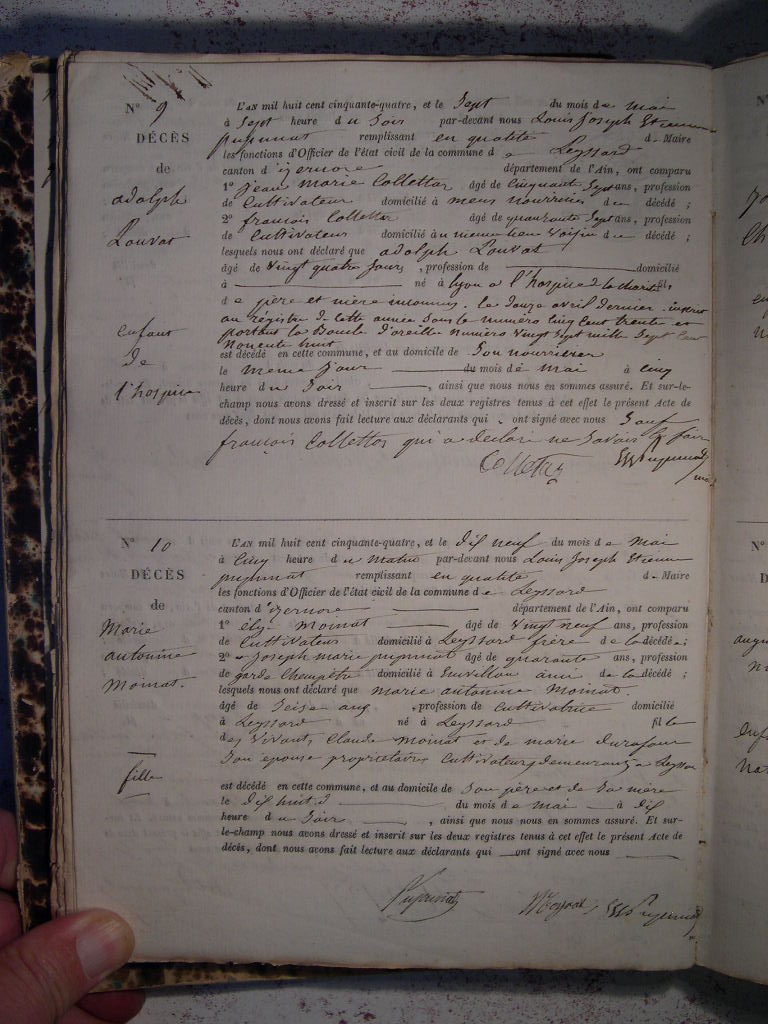 N° 9
DÉCÈS
de
adolph
Louvat
enfant
de
l'hospice
L'AN mil huit cent cinquante-quatre, et le Sept du mois de mai
à Sept heure du Soir par-devant nous Louis Joseph Etienne
pupunat remplissant en qualité d- Maire
les fonctions d'Officier de l'état civil de la commune de Leyssard
canton d'izernore département de l'Ain, ont comparu
1° Jean marie Collettaz âgé de Cinquante Sept ans, profession
de Cultivateur domicilié à mens nourricier du décédé ;
2° francois Collettaz âgé de quarante Sept ans, profession
de Cultivateur domicilié au meme lieu Voisin du décédé ;
lesquels nous ont déclaré que adolph Louvat
âgé de Vingt quatre Jours, profession de domicilié
à né à lyon a l'hospice de la charité fil,
de père et mère inconnus. le douze avril dernier. inscrit
au régistre de cette année Sous le numéro cinq Cent trente et
portant la Boucle d'oreille numéro Vingt Sept mille Sept Cent
Nonente huit
est décédé en cette commune, et au domicile de Son nourricier
le meme Jour du mois de mai à cinq
heure du Soir , ainsi que nous nous en sommes assuré. Et sur-le-
champ nous avons dressé et inscrit sur les deux registres tenus à cet effet le présent Acte de
décès, dont nous avons fait lecture aux déclarants qui ont signé avec nous Sauf
françois Collettaz qui a declaré ne Savoir le faire
Collettaz
N° 10
DÉCÈS
de
Marie
antoinine
Moinat.
fille
L'AN mil huit cent cinquante-quatre, et le dix neuf du mois de Mai
à Cinq heure du Matin par-devant nous Louis Joseph Etienne
pupunat remplissant en qualité d- Maire
les fonctions d'Officier de l'état civil de la commune de Leyssard
canton d'izernore département de l'Ain, ont comparu
1° élie Moinat âgé de Vingt neuf ans, profession
de Cultivateur domicilié à Leyssard frère de la décédée ;
2° Joseph marie pupunat âgé de quarante ans, profession
de garde Champêtre domicilié à Envillon ami de la décédé ;
lesquels nous ont déclaré que marie antoinine Moinat.
âgé de Seise ans , profession de Cultivatrice domicilié
à Leyssard né à Leyssard fille
des Vivants Claude Moinat et de marie durafour
Son épouse propriétaires Cultivateurs demeurant a Leyssard
est décédé en cette commune, et au domicile de Son père et de Sa mère
le dix huit du mois de Mai à dix
heure du Soir , ainsi que nous nous en sommes assuré. Et sur-
le-champ nous avons dressé et inscrit sur les deux registres tenus à cet effet le présent Acte de
décès, dont nous avons fait lecture aux déclarants qui ont signé avec nous
Pupunat